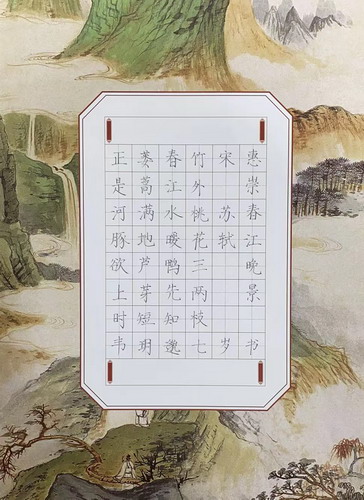 惠崇春江晚景
宋 苏轼
竹外桃花三两枝
春江水暖鸭先知
蒌蒿满地芦芽短
正是河豚欲上时
韦玥 七岁书